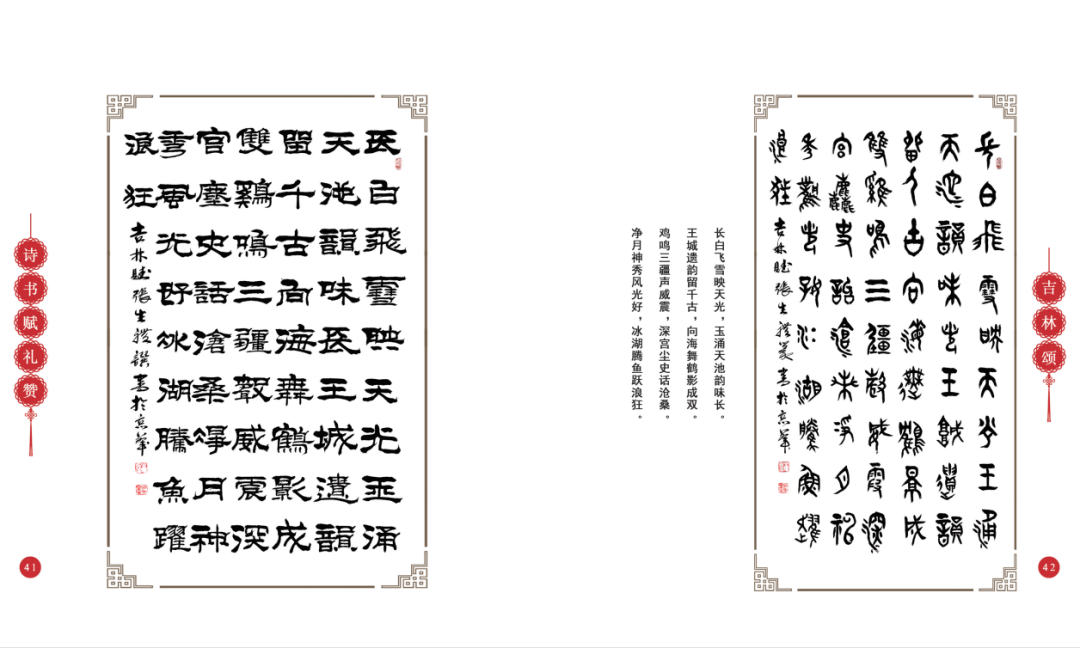 诗书赋礼赞
長白飛雪映天光玉涌
天池韻味長王城遺韻
留千古向海舞鶴影成
雙鷄鳴三疆聲威震深
宫塵史話滄桑淨月神
秀風光好冰湖騰魚躍
浪狂
吉林賦張生 撰書於京華
41
长白飞雪映天光，玉涌天池韵味长。
王城遗韵留千古，向海舞鹤影成双。
鸡鸣三疆声威震，深宫尘史话沧桑。
净月神秀风光好，冰湖腾鱼跃浪狂。
長白飛雪映天光玉涌
天池韻味長王城遺韻
留千古向海舞鶴影成
雙雞鳴三疆聲威震深
宮塵史話滄桑淨月神
秀風光好冰湖騰魚躍
浪狂
吉林賦張生 書於京華
吉林颂
42